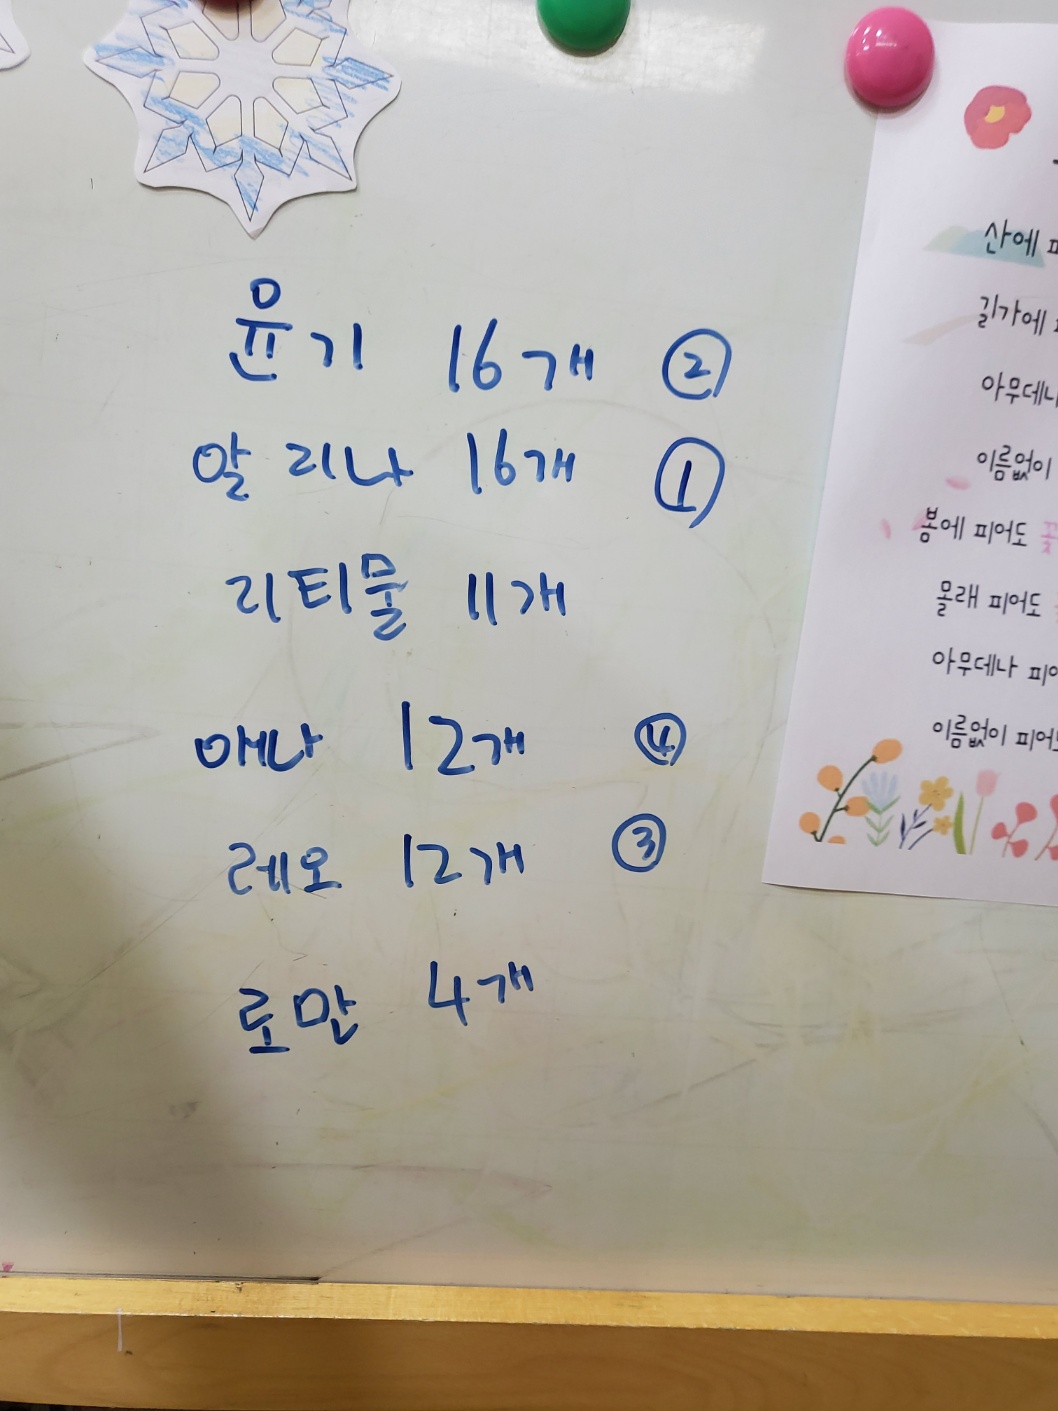 윤기 16개 ②
알리나 16개 ①
리티물 11개
애나 12개 ④
레오 12개 ③
로만 4개
산에 피
길가에 피
아무데나
이름없이
봄에 피어도 꽃
몰래 피어도
아무데나 피어
이름없이 피어도